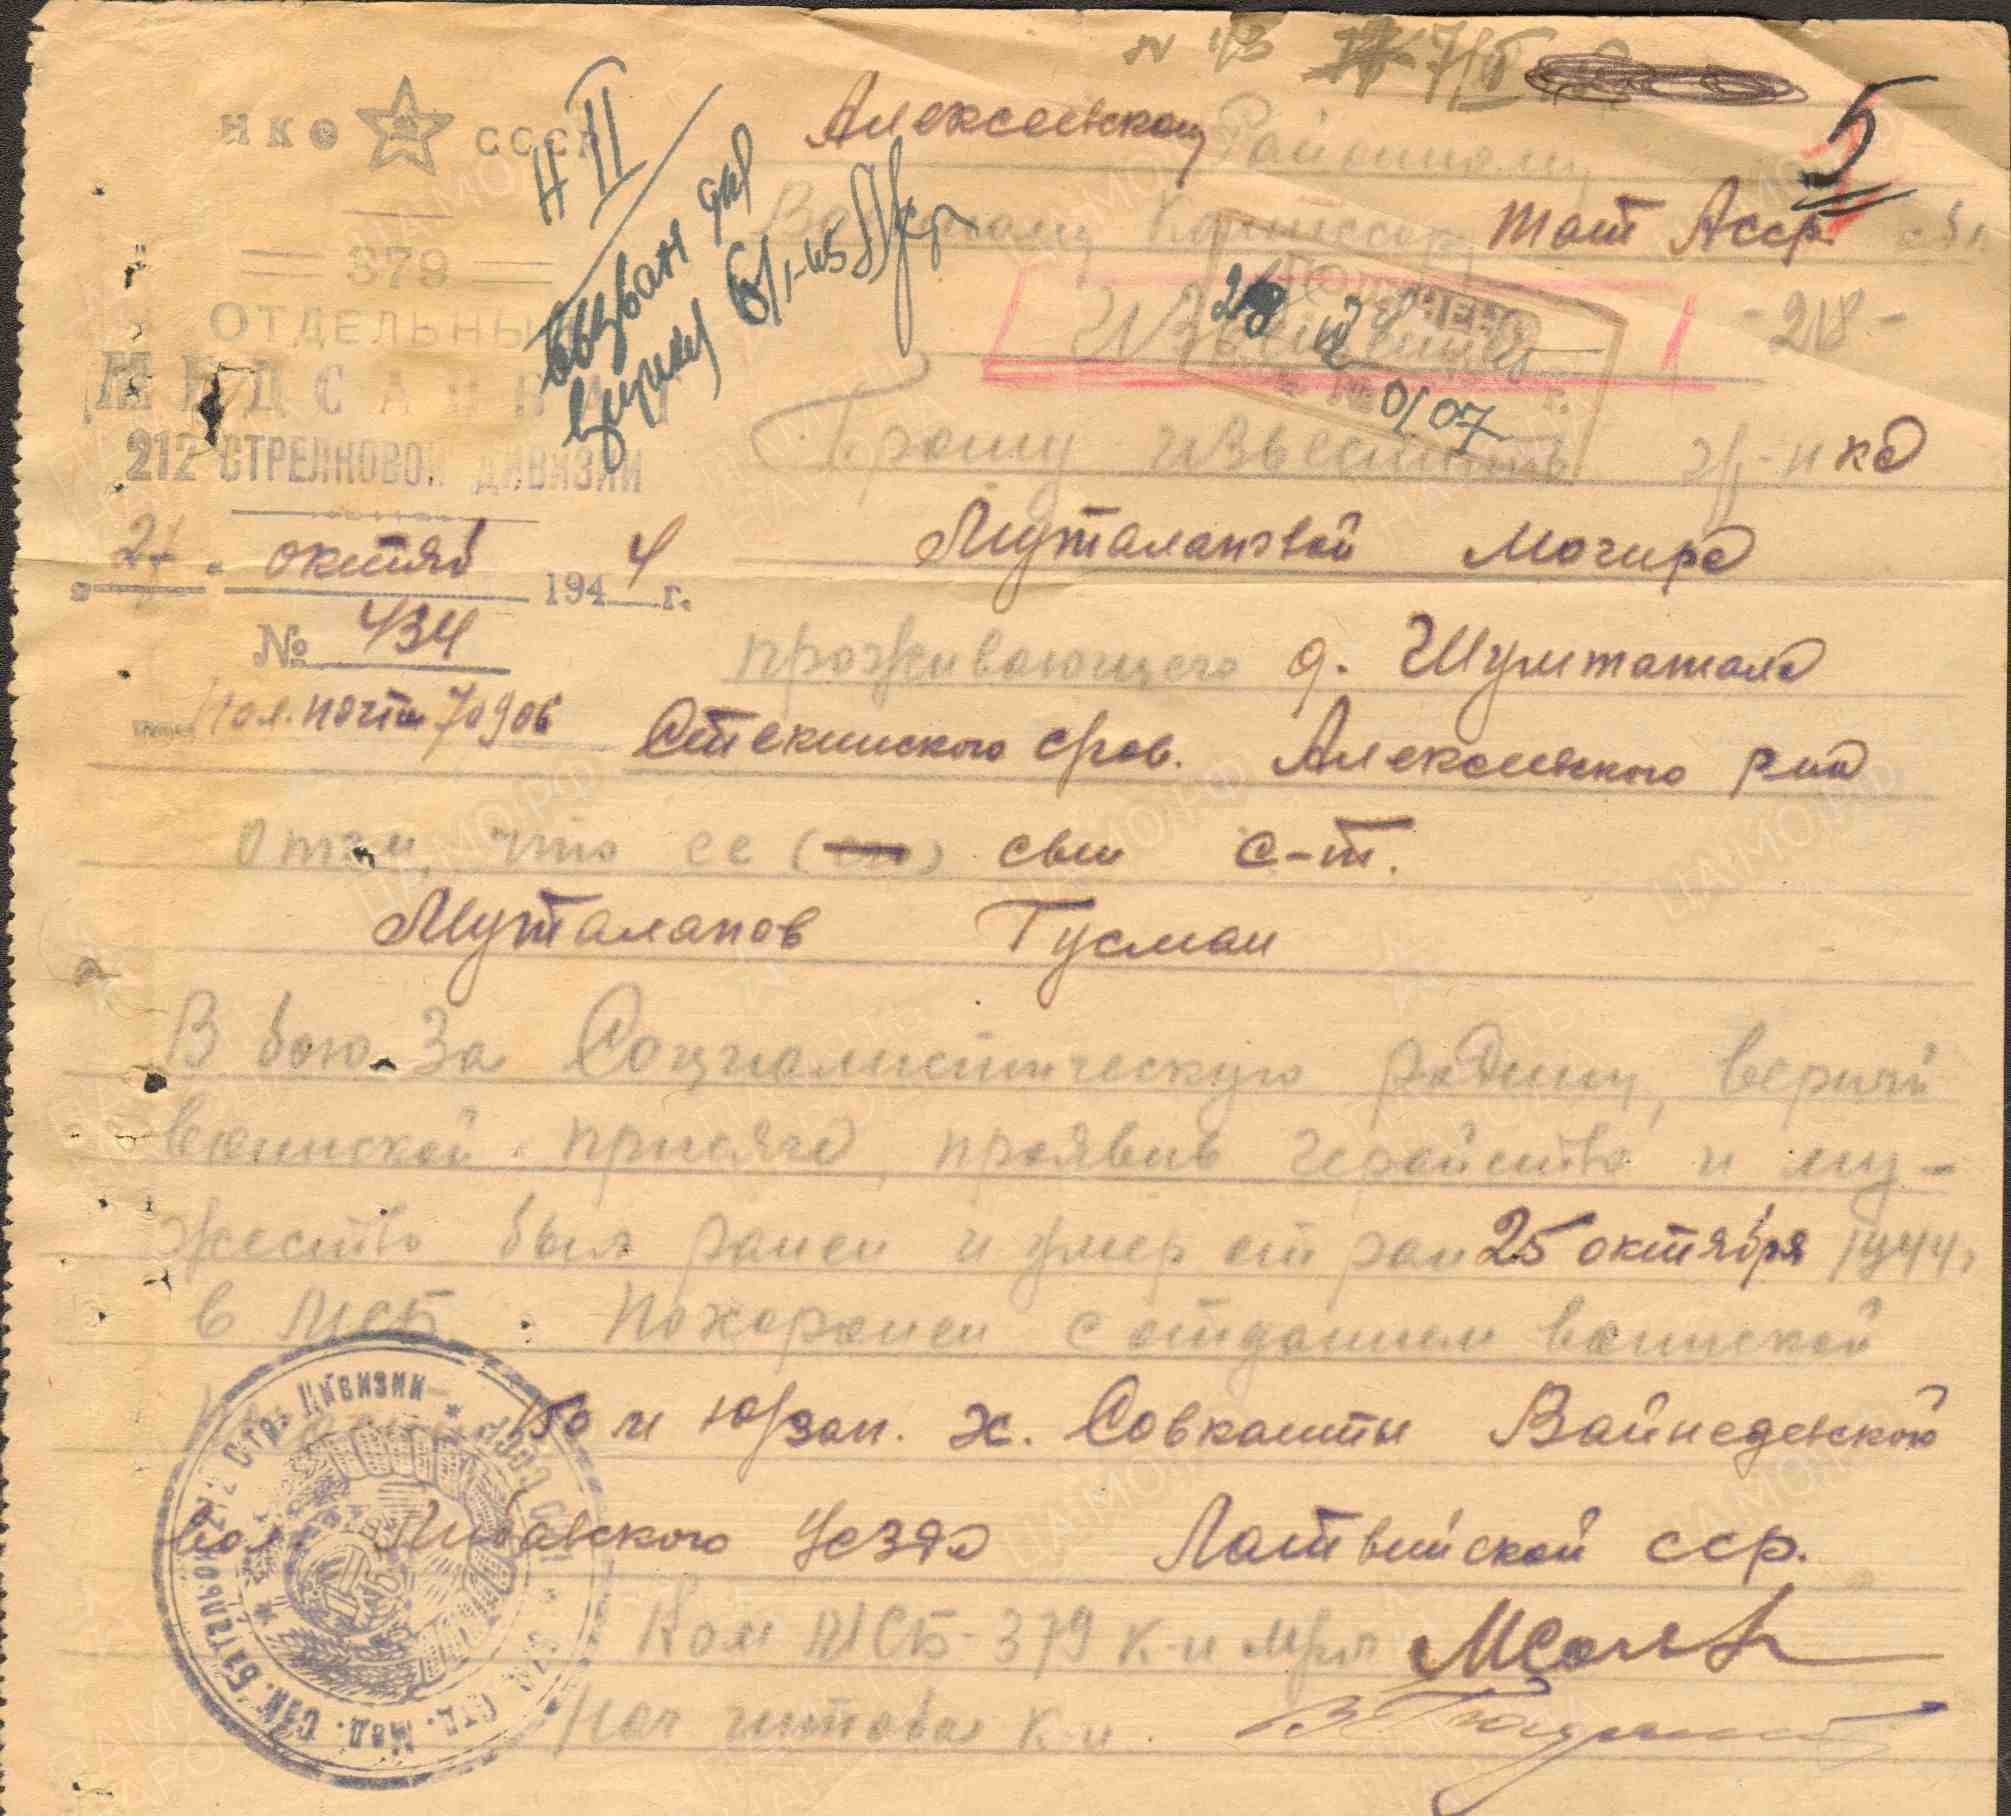 НКО СССР
379
ОТДЕЛЬНЫЙ
МЕДСАНБАТ
212 СТРЕЛКОВОЙ ДИВИЗИИ
21 октяб 1944 г.
№ 434
Пол. почта 70906
Н II
5
Алексеевскому Районному
Военному Комиссару Тат Асср.
Извещение
-218-
0107
Прошу известить гр-нка
Муталаповой Мочира
проживающего д. Шумтатала
Стекинского сров. Алексеевского р-на
о том, что ее (его) сын с-т.
Муталапов Гусман
В бою за Социалистическую родину, верный
воинской присяге, проявив геройство и му-
жество был ранен и умер от ран 25 октября 1944 г
в МСБ. Похоронен с отданием воинской
150 м юрзап. х. Совкаитты Вайнедевской
вол. Либавского Уезда Латвийской сср.
Ком МСБ-379 к-н м/с
Нач штаба к-н
212 Стр. Дивизии * Отд. Мед. Сан. Батальон